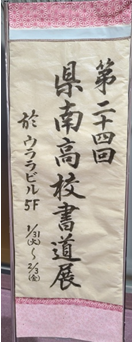 第二十四回
県南高校書道展
於 ウララビル5F
1/31(火)～2/3(金)